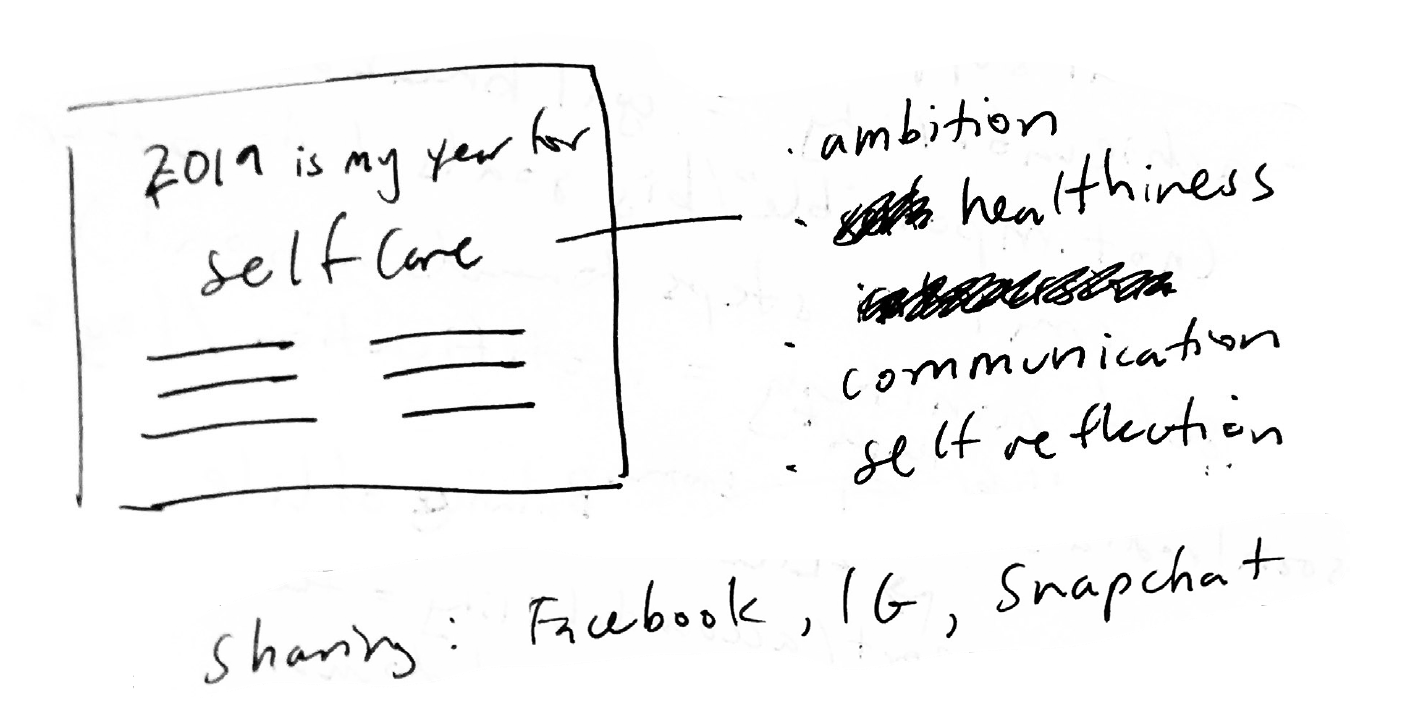 2019 is my year for
self care
· ambition
· healthiness
· communication
· self reflection
Sharing: Facebook, IG, Snapchat